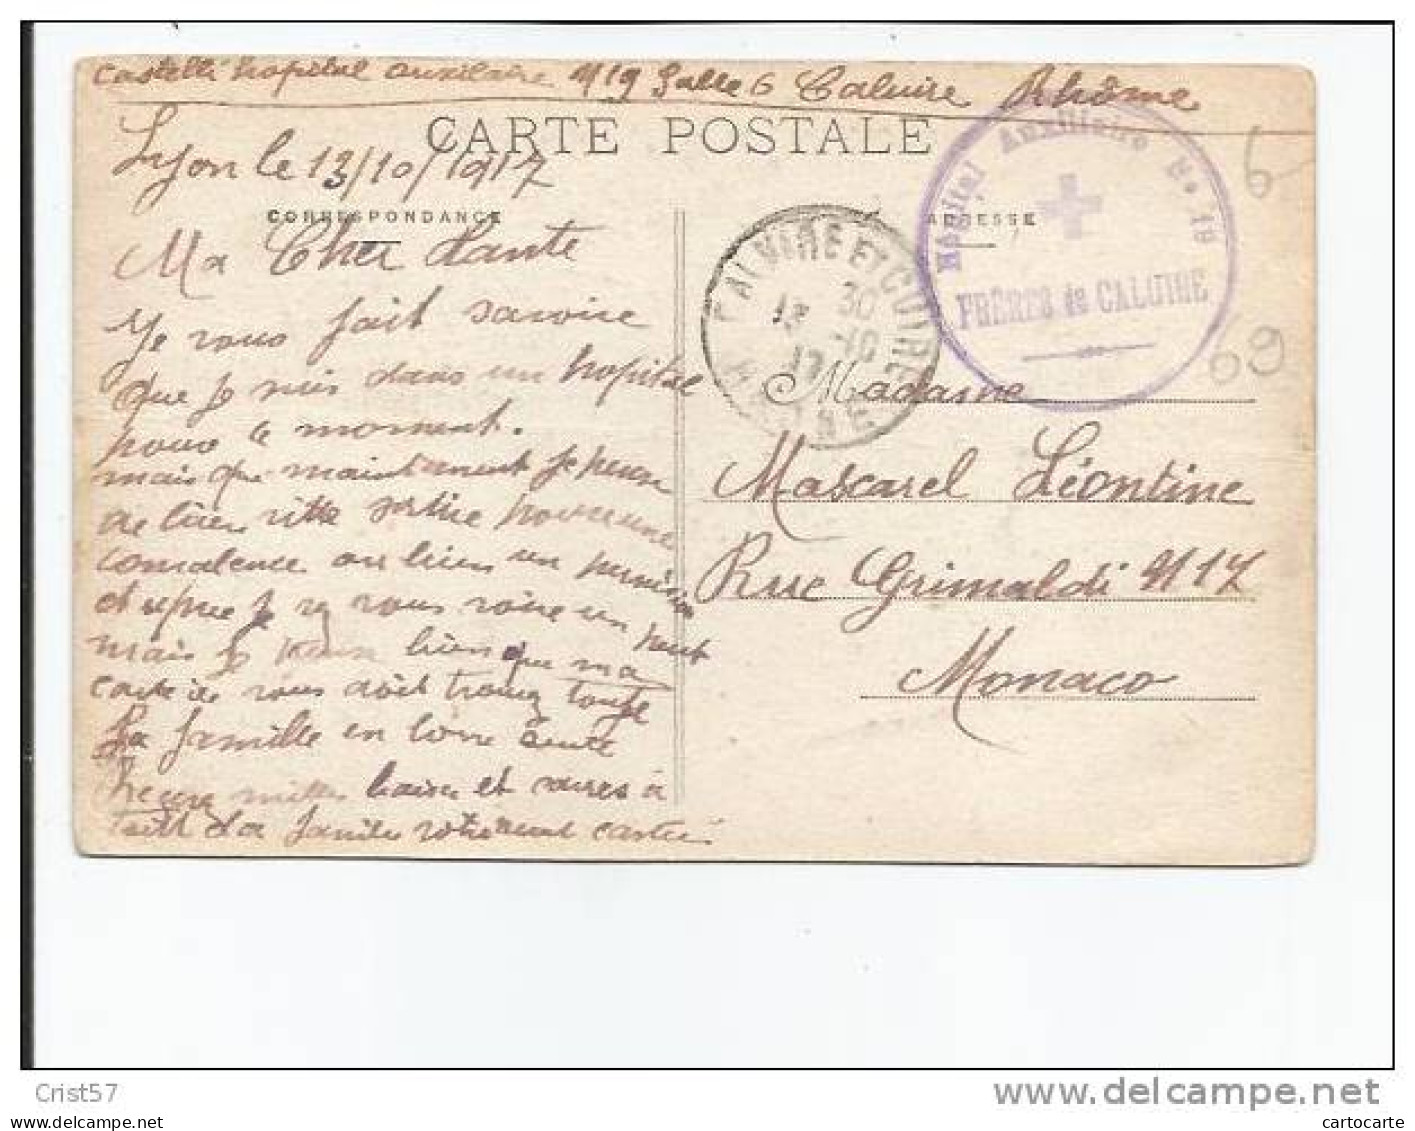 Castelli hopital auxilaire N 19 Salle 6 Caluire Rhône
CARTE POSTALE
Lyon le 13/10/1917
CORRESPONDANCE
ADRESSE
Ma Cher tante
Je vous fait savoire
que je suis dans un hopital
pour le moment.
mais que maintenent je pense
de bien vitte sortire pour une
convalence ou bien un permision
et apres je vous voire un peut
mais je pense bien que ma
carte vous doit trouvez toute
La famille en bonne sente
Recevez milles baiser et
la famile votre neveu castelli
CALUIRE ET CUIRE
13
30
10
17
RHONE
Hôpital Auxiliaire N° 19
FRÈRES de CALUIRE
6
69
Madame
Mascarel Léontine
Rue Grimaldi N 17
Monaco
Crist57
www.delcampe.net
cartocarte